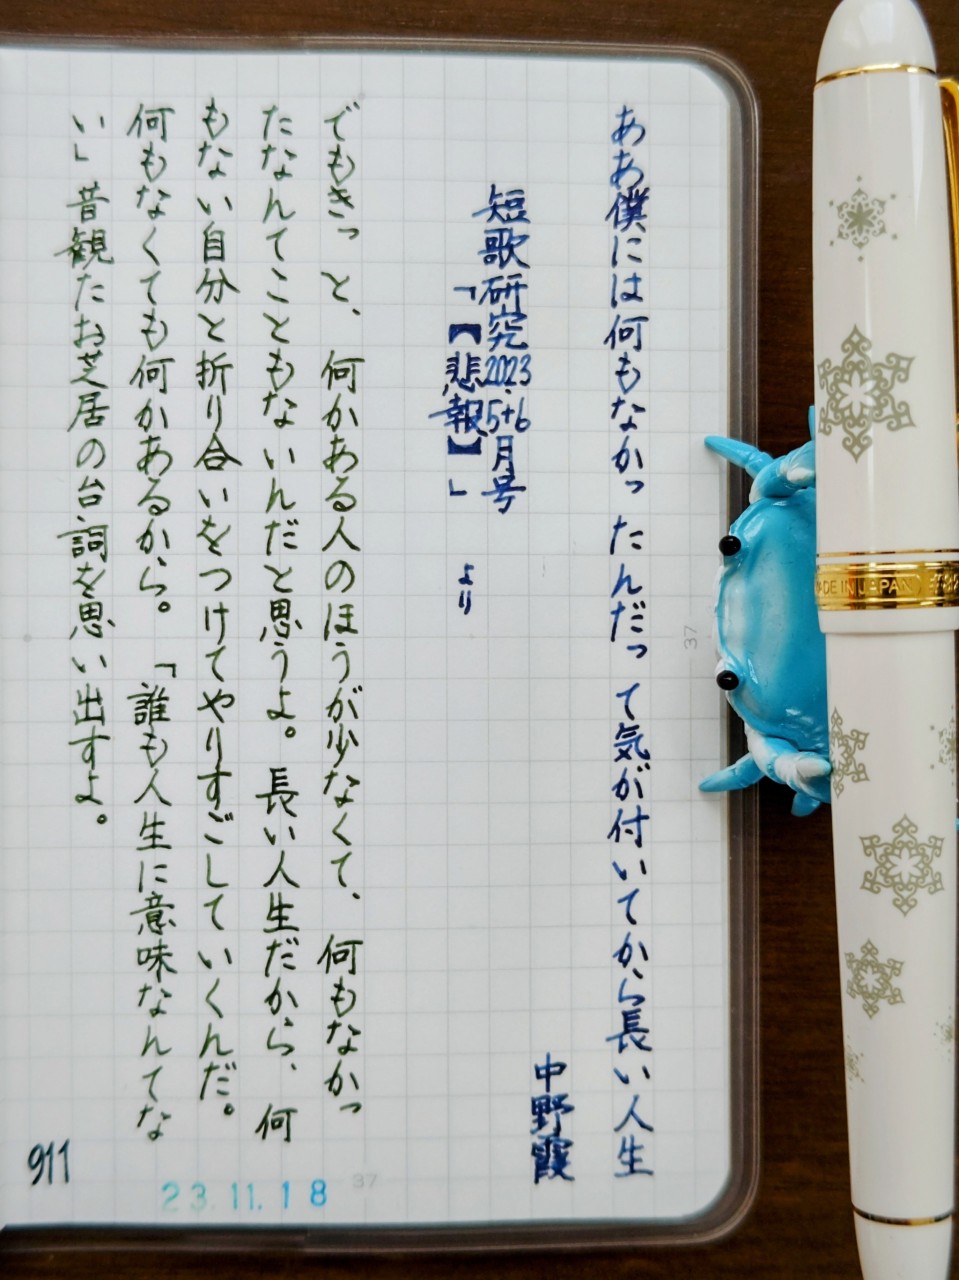 ああ僕には何もなかったんだって気が付いてから長い人生
中野霞
短歌研究2023.5+6月号
「【悲報】」より
でもきっと、何かある人のほうが少なくて、何もなかっ
たなんてこともないんだと思うよ。長い人生だから、何
もない自分と折り合いをつけてやりすごしていくんだ。
何もなくても何かあるから。「誰も人生に意味なんてな
い」昔観たお芝居の台詞を思い出すよ。
911
23.11.18
37
37
MADE IN JAPAN